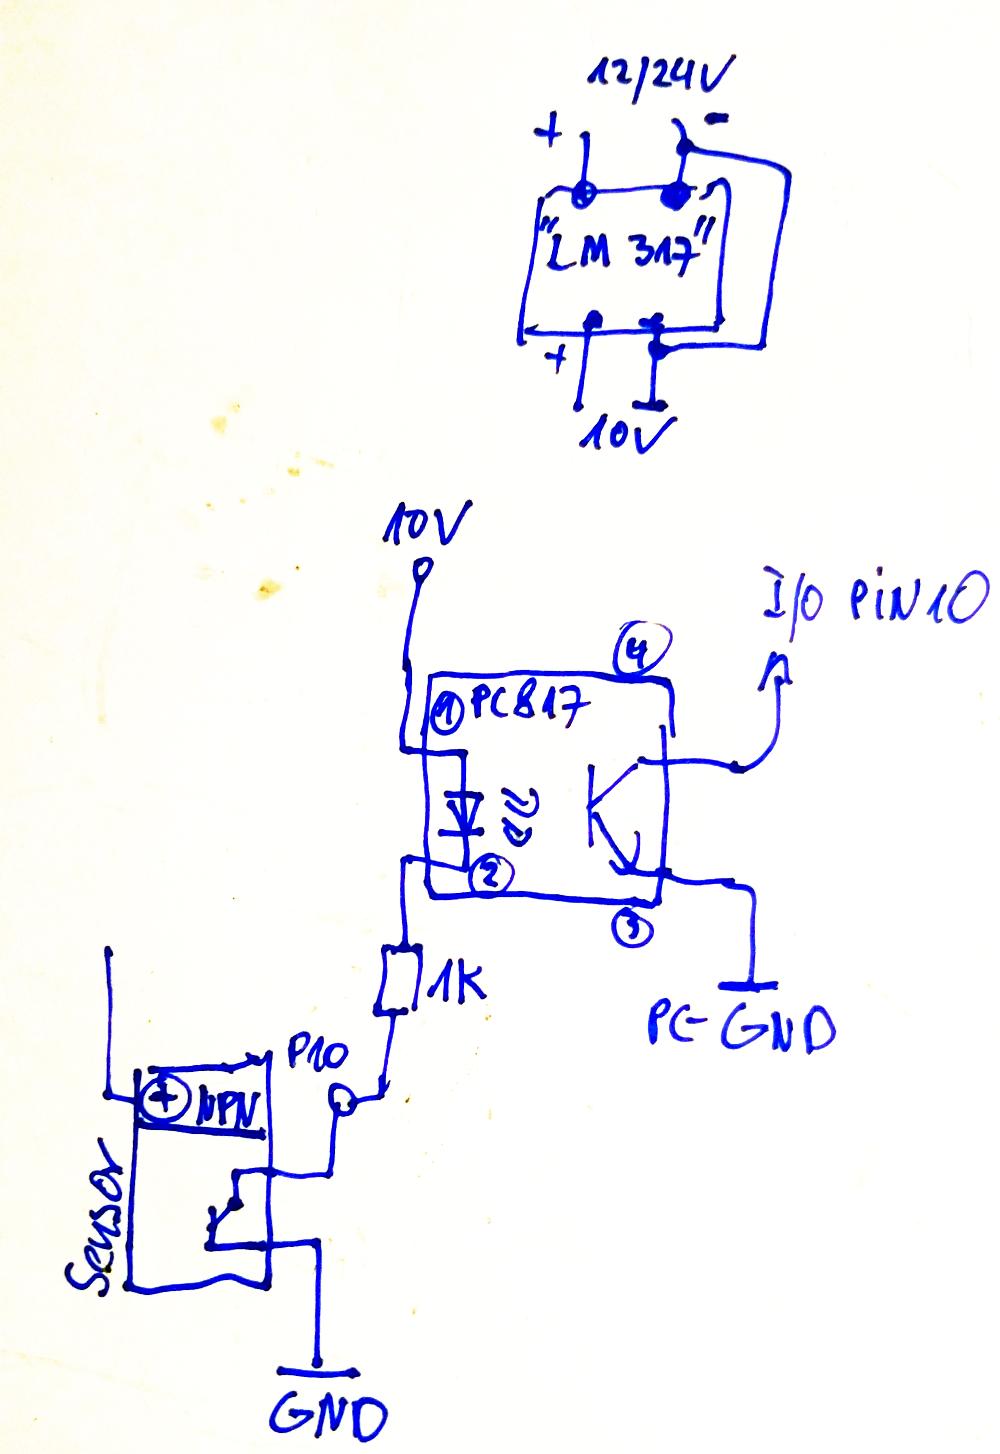 12/24V
+ -
"LM 317"
+
10V
10V
I/O PiN10
4
1 PC817
2
3
1K
PC-GND
P10
+ NPN
Sensor
GND